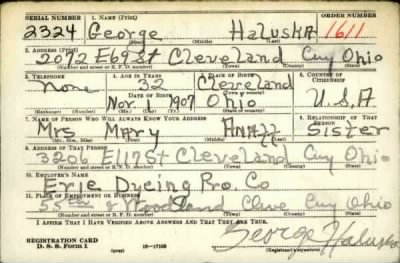 SERIAL NUMBER 1. NAME (Print) ORDER NUMBER
2324 George Haluska 1611
(First) (Middle) (Last)
2. ADDRESS (Print)
2072 E 69 St Cleveland Cuy Ohio
(Number and street or R. F. D. number) (Town) (County) (State)
3. TELEPHONE 4. AGE IN YEARS 5. PLACE OF BIRTH 6. COUNTRY OF CITIZENSHIP
None 32 Cleveland
DATE OF BIRTH (Town or county)
Nov 1 1907 Ohio U.S.A
(Exchange) (Number) (Mo.) (Day) (Yr.) (State or country)
7. NAME OF PERSON WHO WILL ALWAYS KNOW YOUR ADDRESS 8. RELATIONSHIP OF THAT PERSON
Mrs Mary Sister
(Mr., Mrs., Miss) (First) (Middle) (Last)
9. ADDRESS OF THAT PERSON
3206 E 117 St Cleveland Cuy Ohio
(Number and street or R. F. D. number) (Town) (County) (State)
10. EMPLOYER'S NAME
Erie Dyeing Pro. Co
11. PLACE OF EMPLOYMENT OR BUSINESS
55th & Woodland Cleve Cuy Ohio
(Number and street or R. F. D. number) (Town) (County) (State)
I AFFIRM THAT I HAVE VERIFIED ABOVE ANSWERS AND THAT THEY ARE TRUE.
George Haluska
REGISTRATION CARD
D. S. S. Form 1 16—17105 (Registrant's signature)